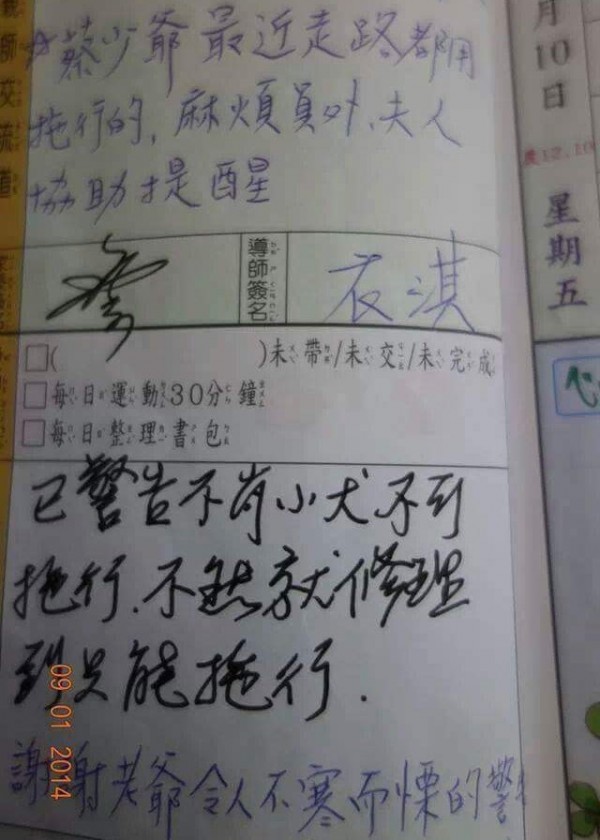 師交流道
月10日
農12.10
星期五
☆蔡少爺最近走路都用
拖行的,麻煩員外、夫人
協助提醒
導師簽名
衣淇
□( )未帶/未交/未完成
□每日運動30分鐘
□每日整理書包
心
已警告不肖小犬不可
拖行.不然就修理
到只能拖行.
謝謝老爺令人不寒而慄的警
09 01 2014